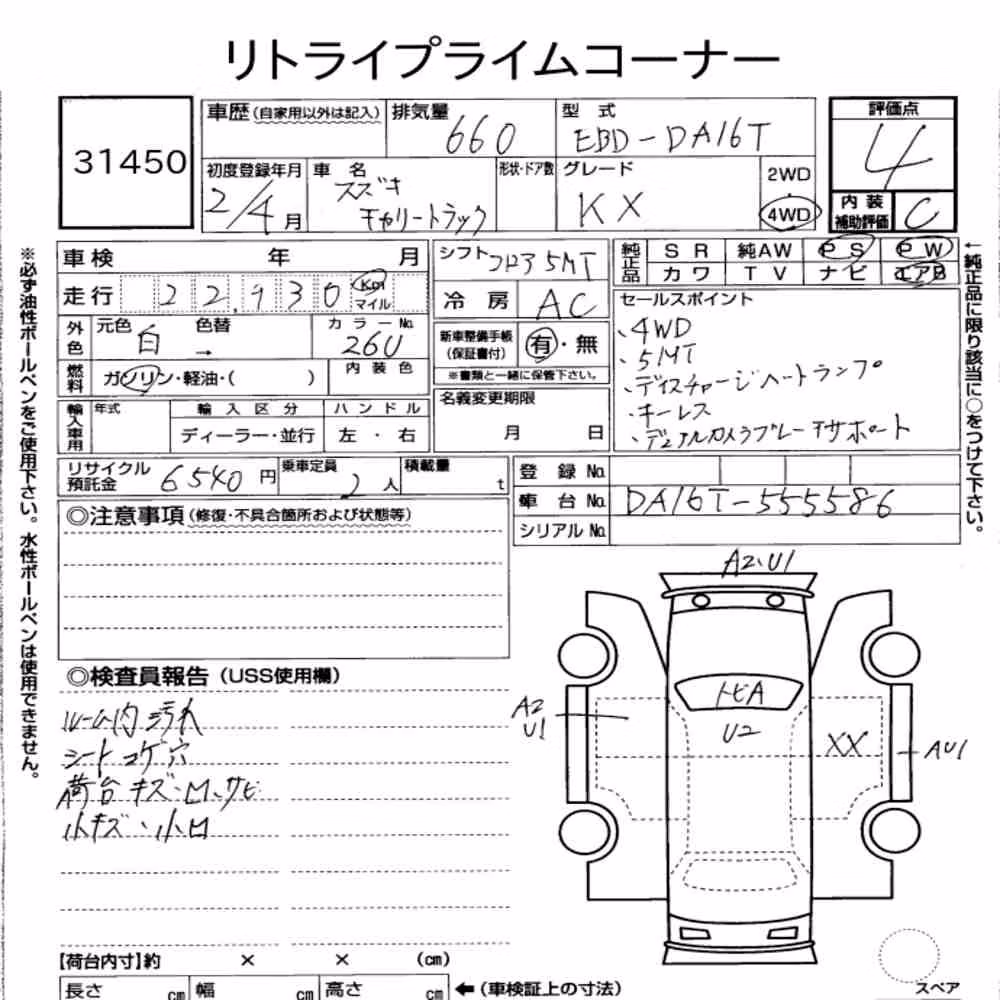 リトライプライムコーナー
31450
車歴 (自家用以外は記入)
排気量 660
型式 EBD-DA16T
評価点 4
初度登録年月 2/4月
車名 スズキ キャリートラック
形状・ドア数
グレード KX
2WD
4WD
内装補助評価 C
車検 年 月
走行 22,930 Km マイル
外色 元色 白 色替 →
カラーNo. 26U
燃料 ガソリン・軽油・( )
内装色
輸入車用 年式 輸入区分 ハンドル
ディーラー・並行 左・右
シフト コラ35MT
冷房 AC
新車整備手帳 (保証書付) 有・無
※書類と一緒に保管下さい。
名義変更期限
月 日
純正品 SR 純AW PS PW
カワ TV ナビ エアB
セールスポイント
、4WD
、5MT
、ディスチャージヘッドランプ
、キーレス
、デュアルカメラブレーキサポート
リサイクル預託金 6540円
乗車定員 2人
積載量 t
登録No.
車台No. DA16T-555586
シリアルNo.
◎注意事項 (修復・不具合箇所および状態等)
◎検査員報告 (USS使用欄)
ルーム内汚れ
シートコゲ穴
荷台キズ・凹、サビ
小キズ・小凹
A2・U1
トビA
U2
A2
U1
XX
AU1
【荷台内寸】約 × × (cm)
長さ cm 幅 cm 高さ cm ←(車検証上の寸法)
スペア
※必ず油性ボールペンをご使用下さい。水性ボールペンは使用できません。
←純正品に限り該当に○をつけて下さい。